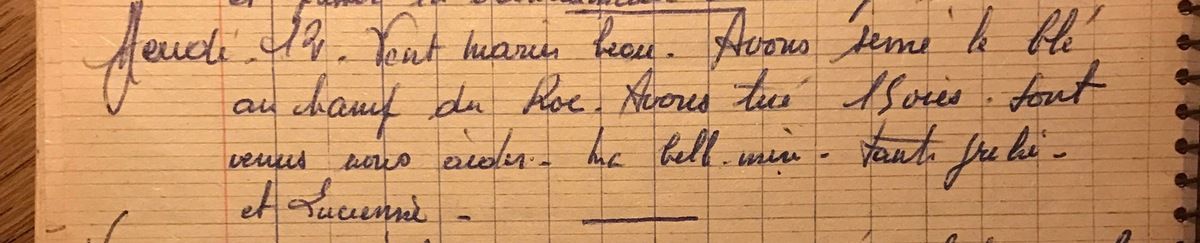 Jeudi. 12. Vent marin beau. Avons semé le blé
au champ du Roc. Avons tué 15 oies. Sont
venus nous aider - ma bell. mère - Tante
et Lucienne -